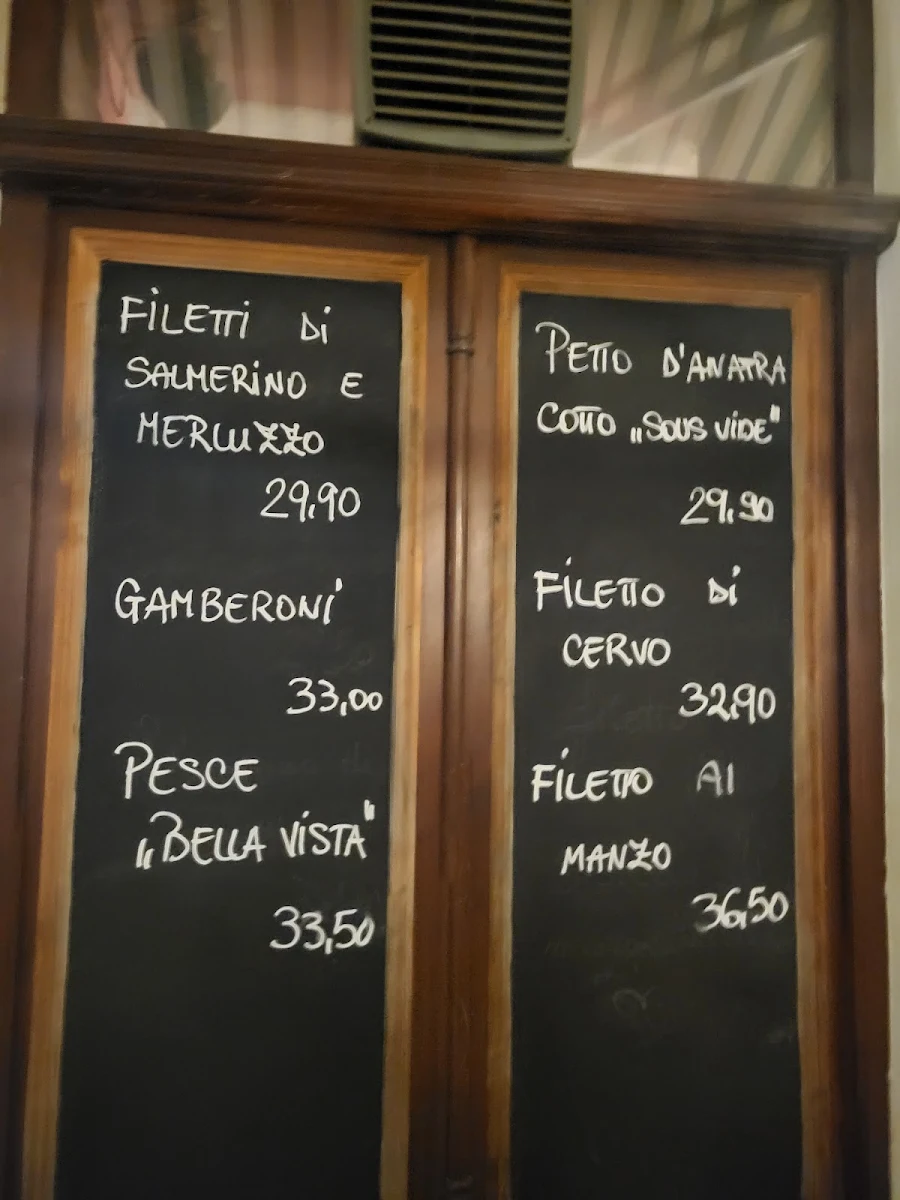 FiLETTi Di
SALMERiNO E
MERLUZZO
29,90
GAMBERONi
33,00
PESCE
„BELLA ViSTA"
33,50
PETTO D'ANATRA
COTTO „SOUS ViDE"
29,90
FiLETTO Di
CERVO
32,90
FiLETTO Al
MANZO
36,50